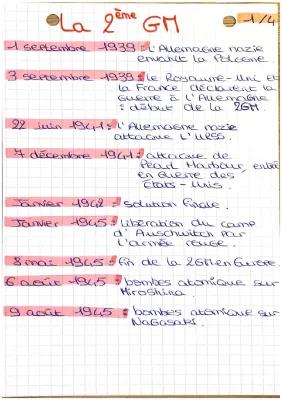 La 2ème GM
1/4
1 septembre 1939 : l'Allemagne nazie
envahit la Pologne.
3 septembre 1939 : le Royaume-Uni et
la France déclarent la
guerre à l'Allemagne
: début de la 2GM.
22 juin 1941 : l'Allemagne nazie
attaque l'URSS.
7 décembre 1941 : attaque de
Pearl Harbour, entrée
en guerre des
États-Unis.
Janvier 1942 : solution finale.
Janvier 1945 : libération du camp
d'Auschwitch par
l'armée rouge.
8 mai 1945 : fin de la 2GM en Europe.
6 août 1945 : bombes atomique sur
Hiroshima.
9 août 1945 : bombes atomique sur
Nagasaki.